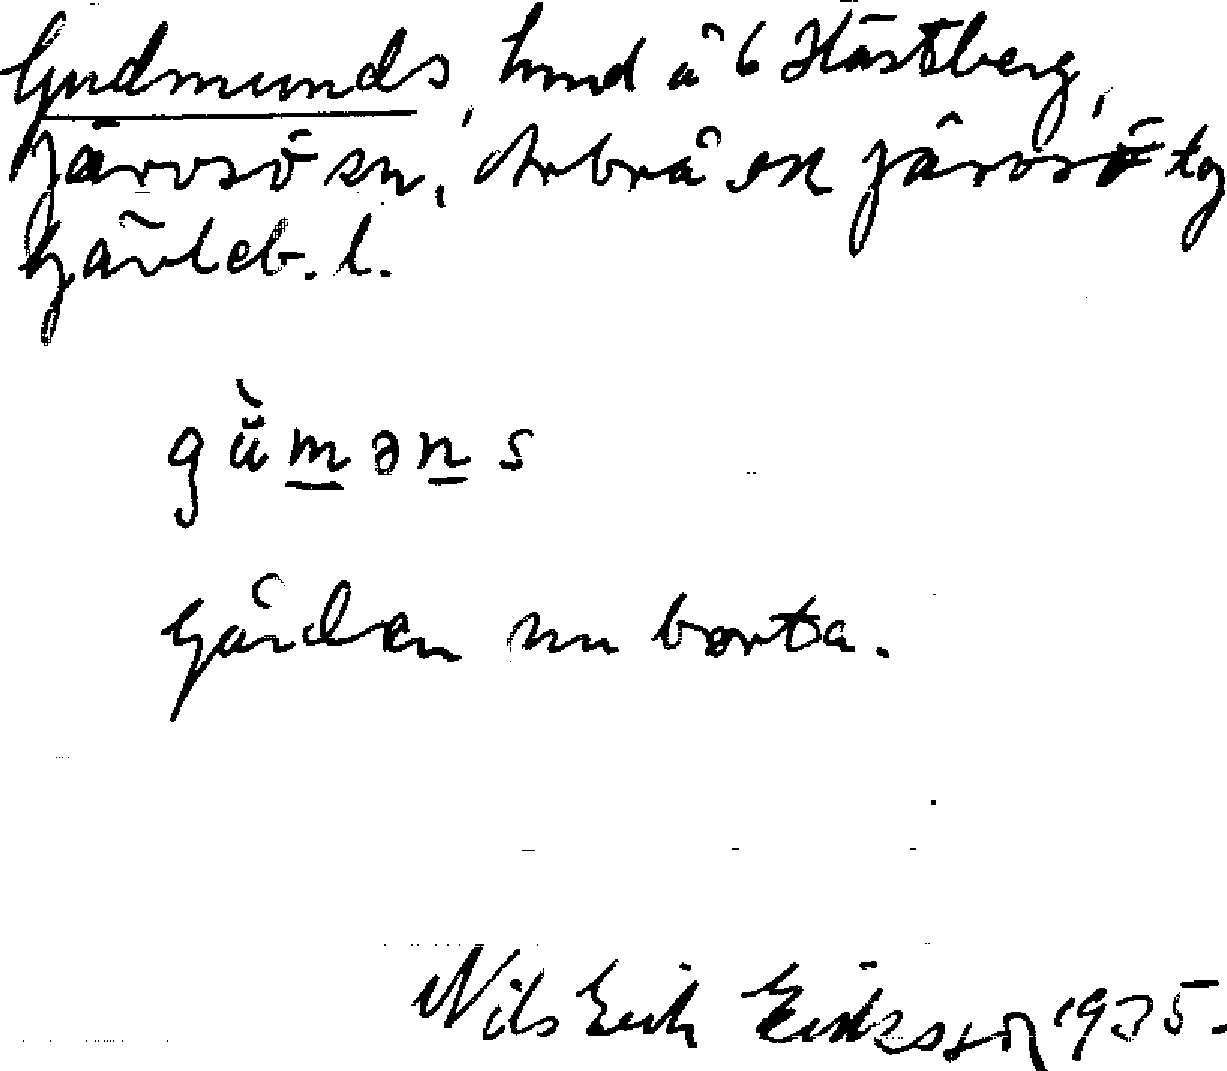 Gudmunds, hmd å 6 Hästberg,
Järvsö sn, Arbrå ok Järvsö tg
Gävleb. l.
gŭ̀məns
Gården nu borta.
Nils Erik Eriksson 1935.